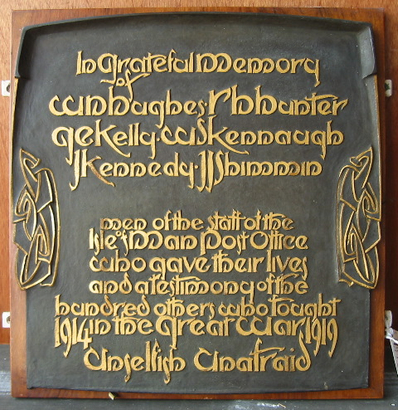 In Grateful Memory
of
W N Hughes · R H Hunter
G E Kelly · W S Kennaugh
J Kennedy · J J Shimmin
men of the staff of the
Isle of Man Post Office
who gave their lives
and a testimony of the
hundred others who fought
1914 in the Great War 1919
Unselfish Unafraid